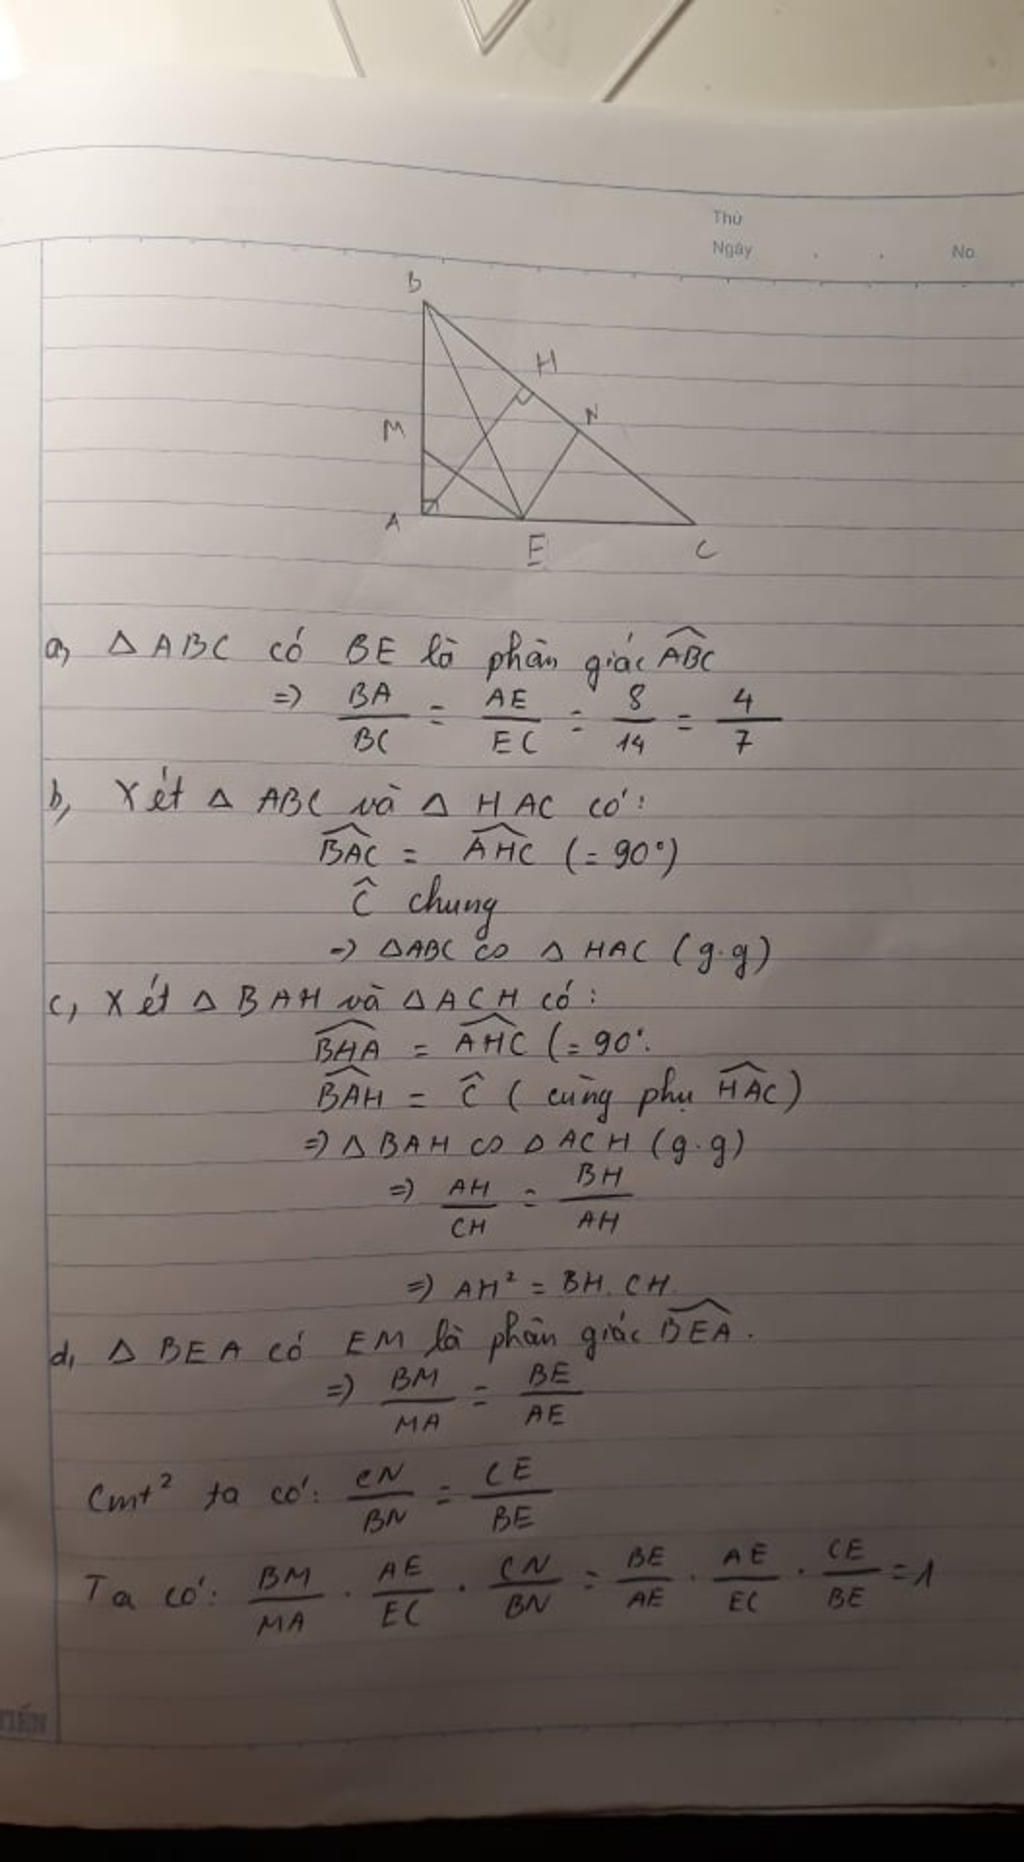 Thứ
Ngày . . No.
B
H
M
N
A
E
C
a, Δ ABC có BE là phân giác \widehat{ABC}
=> \frac{BA}{BC} = \frac{AE}{EC} = \frac{8}{14} = \frac{4}{7}
b, Xét Δ ABC và Δ HAC có:
\widehat{BAC} = \widehat{AHC} (= 90°)
\widehat{C} chung
=> ΔABC ∽ Δ HAC (g.g)
c, Xét Δ BAH và Δ ACH có:
\widehat{BHA} = \widehat{AHC} (= 90°.
\widehat{BAH} = \widehat{C} ( cùng phụ \widehat{HAC})
=> Δ BAH ∽ Δ ACH (g.g)
=> \frac{AH}{CH} = \frac{BH}{AH}
=> AH² = BH. CH.
d, Δ BEA có EM là phân giác \widehat{BEA}.
=> \frac{BM}{MA} = \frac{BE}{AE}
Cmt² ta có: \frac{CN}{BN} = \frac{CE}{BE}
Ta có: \frac{BM}{MA} . \frac{AE}{EC} . \frac{CN}{BN} = \frac{BE}{AE} . \frac{AE}{EC} . \frac{CE}{BE} = 1